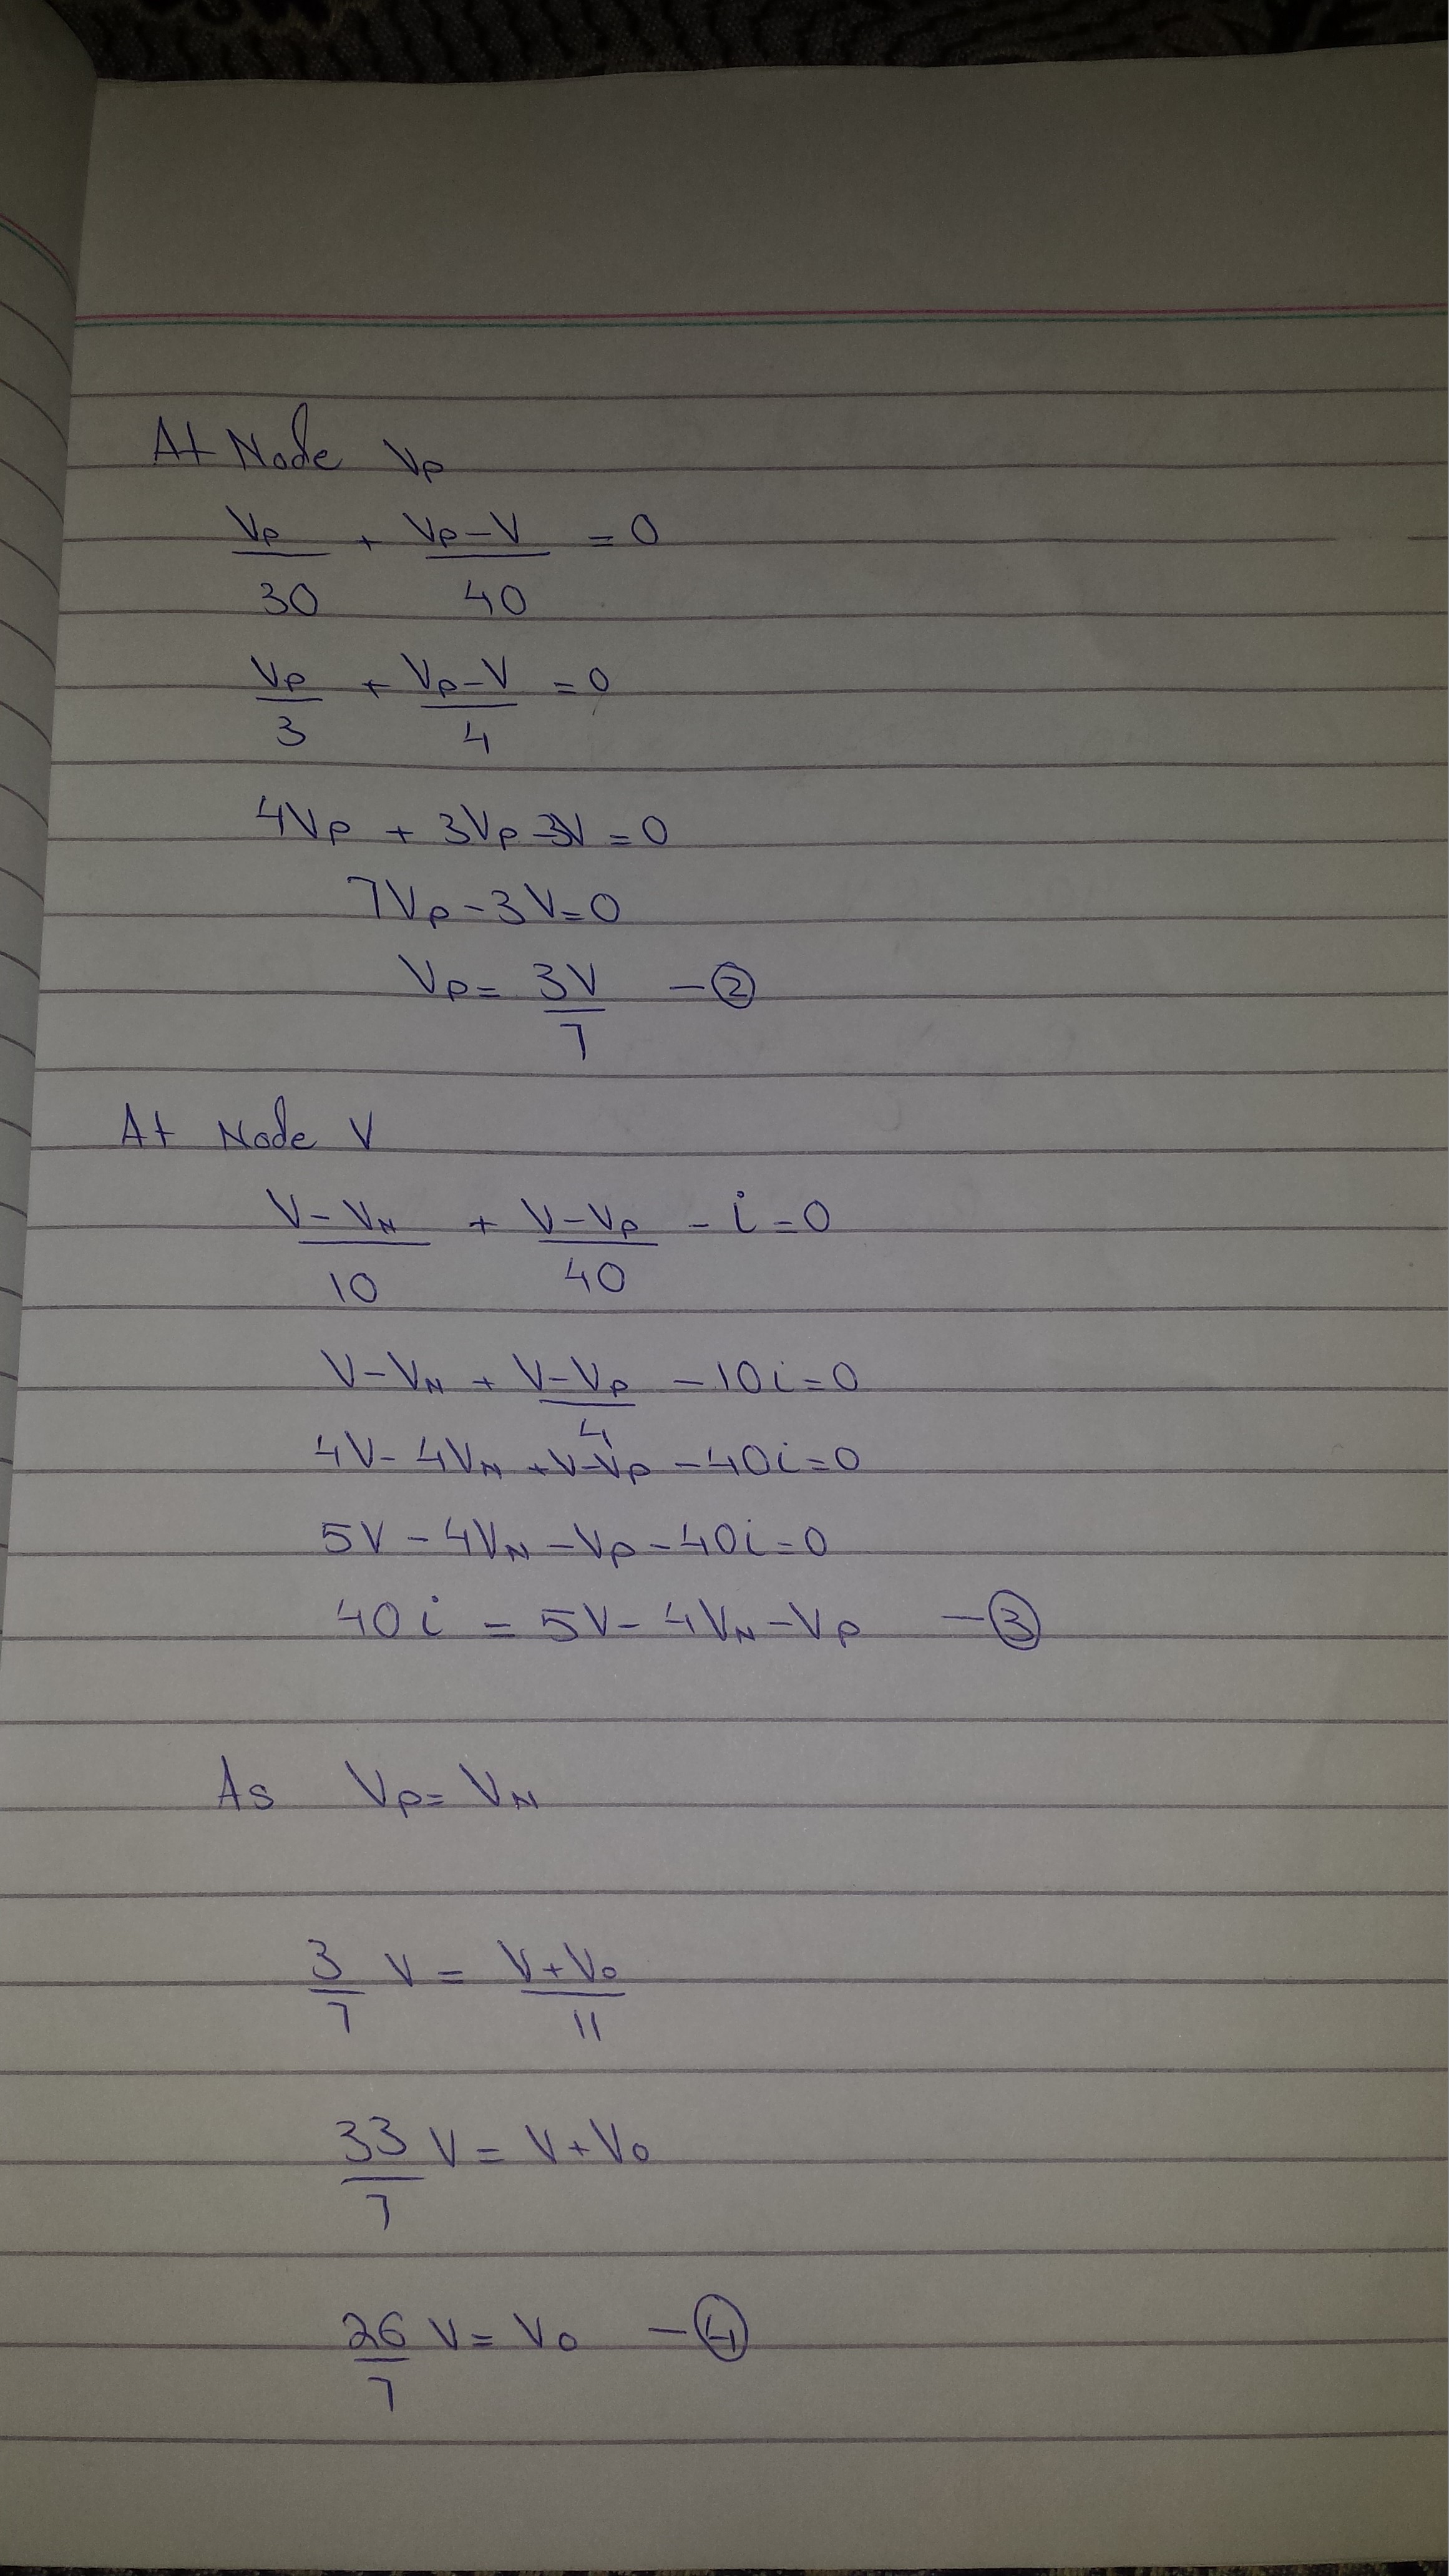 At Node Vp
Vp/30 + Vp-V/40 = 0
Vp/3 + Vp-V/4 = 0
4Vp + 3Vp-3V = 0
7Vp-3V=0
Vp= 3V/7 -②
At Node V
V-VN/10 + V-Vp/40 - i=0
V-VN + V-Vp/4 -10i=0
4V-4VN+V-Vp-40i=0
5V-4VN-Vp-40i=0
40i = 5V-4VN-Vp -③
As Vp= VN
3/7 V = V+Vo/11
33/7 V= V+Vo
26/7 V= Vo -④